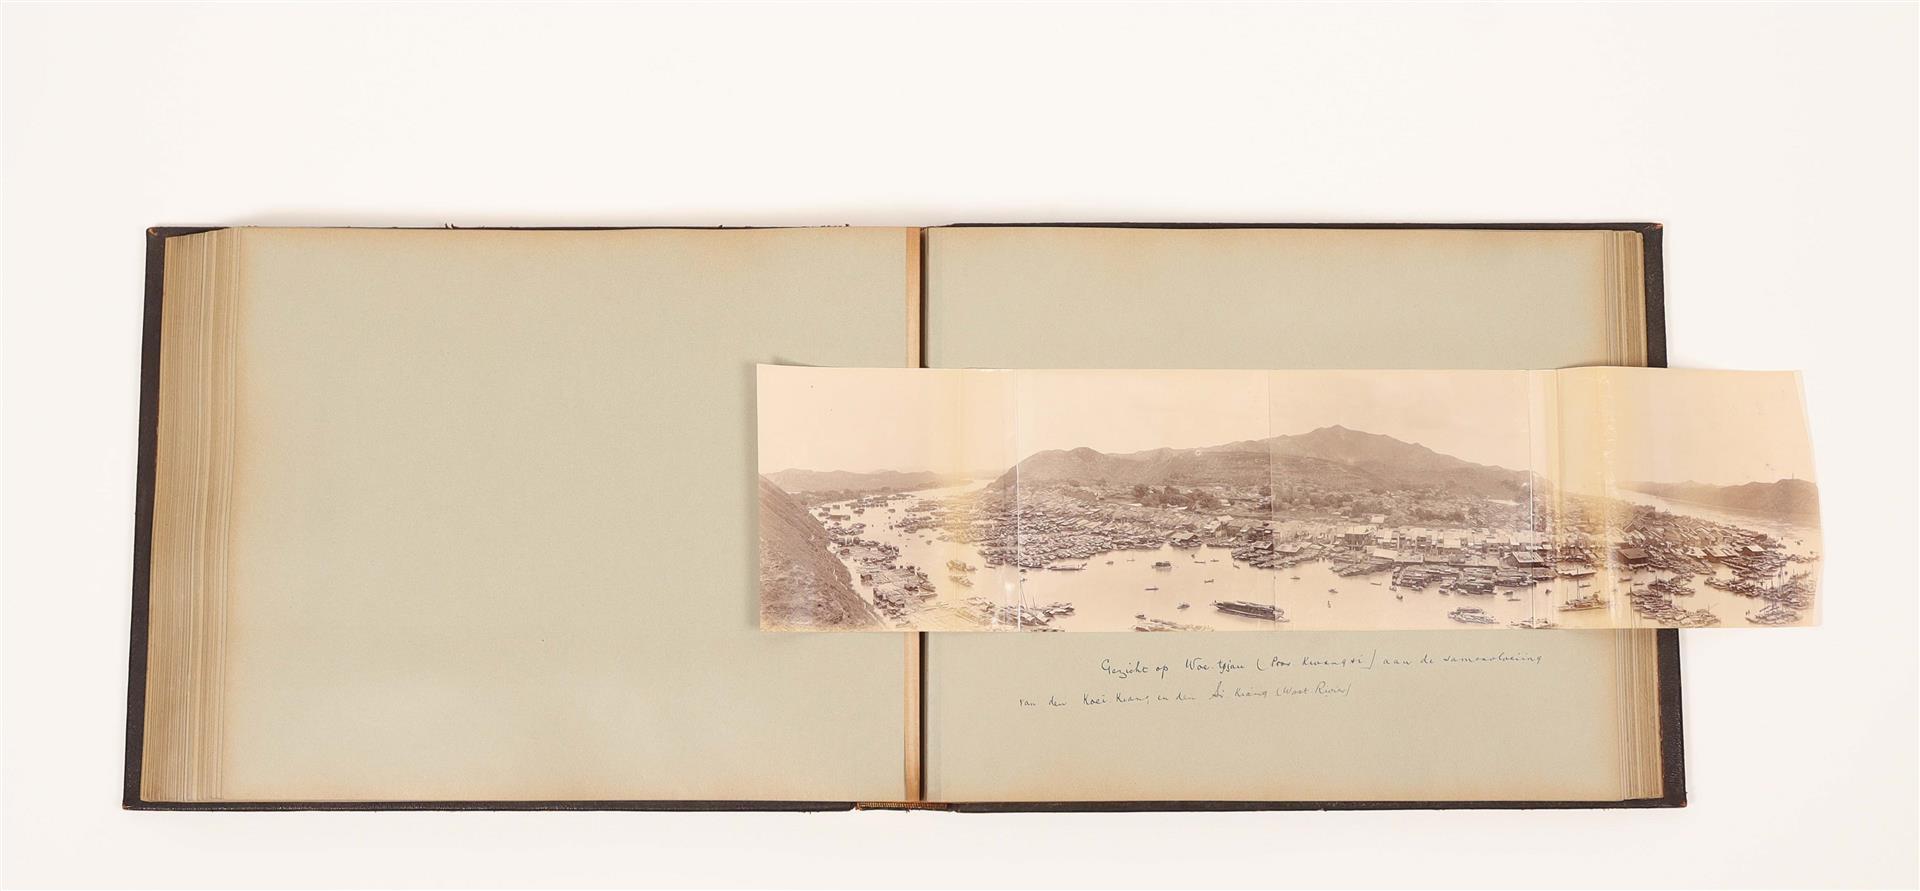 Gezicht op Woe-tsjau (Prov. Kwangsi) aan de samenvloeiing
van den Koei-Kiang en den Si-Kiang (West-Rivier)